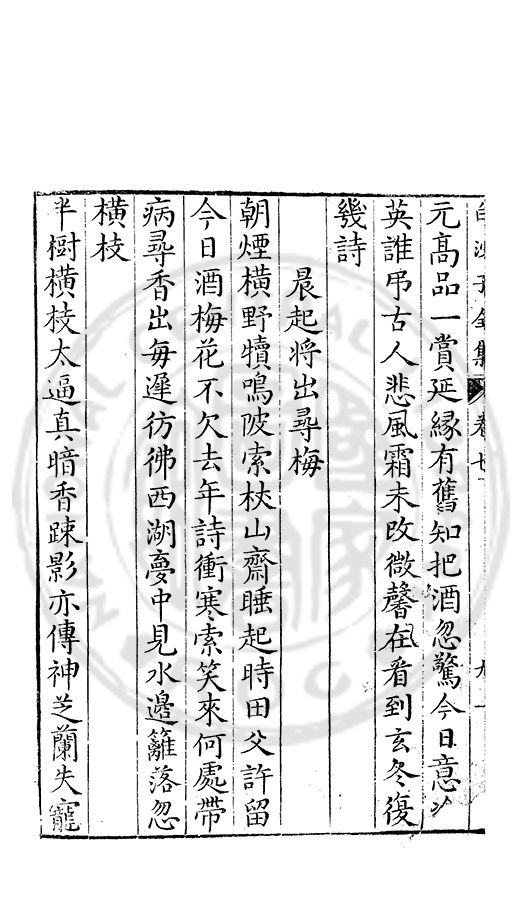 白沙子全集 卷七
元高品一賞延緣有舊知把酒忽驚今日意
英誰吊古人悲風霜未改微馨在看到玄冬復
幾詩
晨起將出尋梅
朝煙橫野犢鳴陂索杖山齋睡起時田父許留
今日酒梅花不欠去年詩衝寒索笑來何處帶
病尋香出每遲彷彿西湖夢中見水邊籬落忽
橫枝
半樹橫枝太逼真暗香踈影亦傳神芝蘭失寵